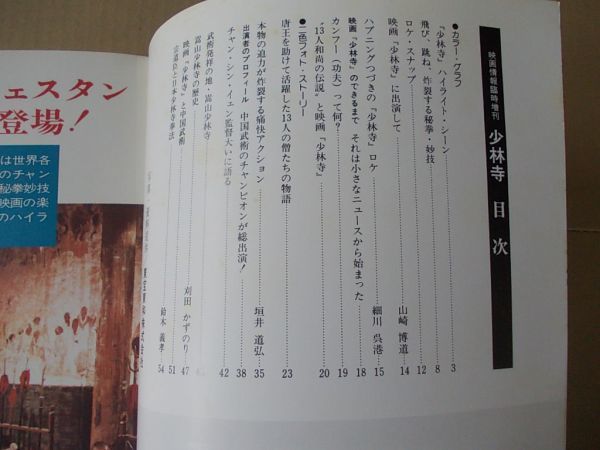 映画情報臨時増刊 少林寺 目次
●カラー・グラフ
『少林寺』ハイライト・シーン 3
飛び、跳ね、炸裂する秘拳・妙技 8
ロケ・スナップ 12
映画『少林寺』に出演して 山崎 博道 14
ハプニングつづきの『少林寺』ロケ 細川 呉港 15
映画『少林寺』のできるまで それは小さなニュースから始まった 18
カンフー(功夫)って何? 19
"13人和尚の伝説"と映画『少林寺』 20
●二色フォト・ストーリー
唐王を助けて活躍した13人の僧たちの物語 23
本物の迫力が炸裂する痛快アクション 垣井 道弘 35
出演者のプロフィール 中国武術のチャンピオンが総出演! 38
チャン・シン・イェン監督大いに語る 42
武術発祥の地・嵩山少林寺
嵩山少林寺の歴史
映画『少林寺』と中国武術 刈田 かずのり 47
宗道臣と日本少林寺拳法 51
鈴木 義孝 54
東宝東和株式会社
ェスタン
登場!
は世界各
のチャン
秘拳妙技
映画の楽
のハイラ